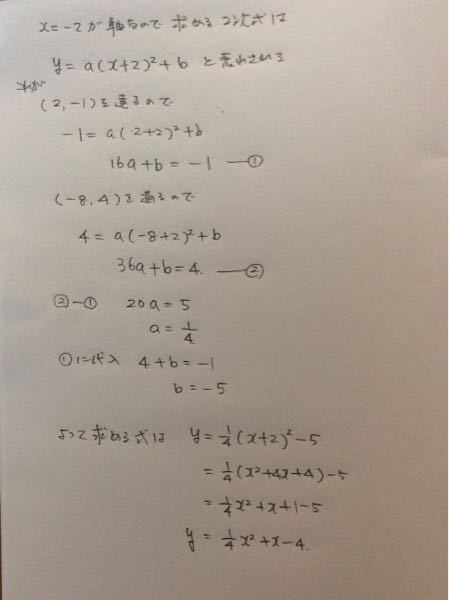 x=-2が軸なので 求める2次式は
y=a(x+2)²+b と表わされる
これが
(2,-1)を通るので
-1=a(2+2)²+b
16a+b=-1 —①
(-8,4)を通るので
4=a(-8+2)²+b
36a+b=4. —②
②-① 20a=5
a=1/4.
①に代入 4+b=-1
b=-5
よって求める式は y=1/4(x+2)²-5
=1/4(x²+4x+4)-5
=1/4x²+x+1-5
y=1/4x²+x-4.